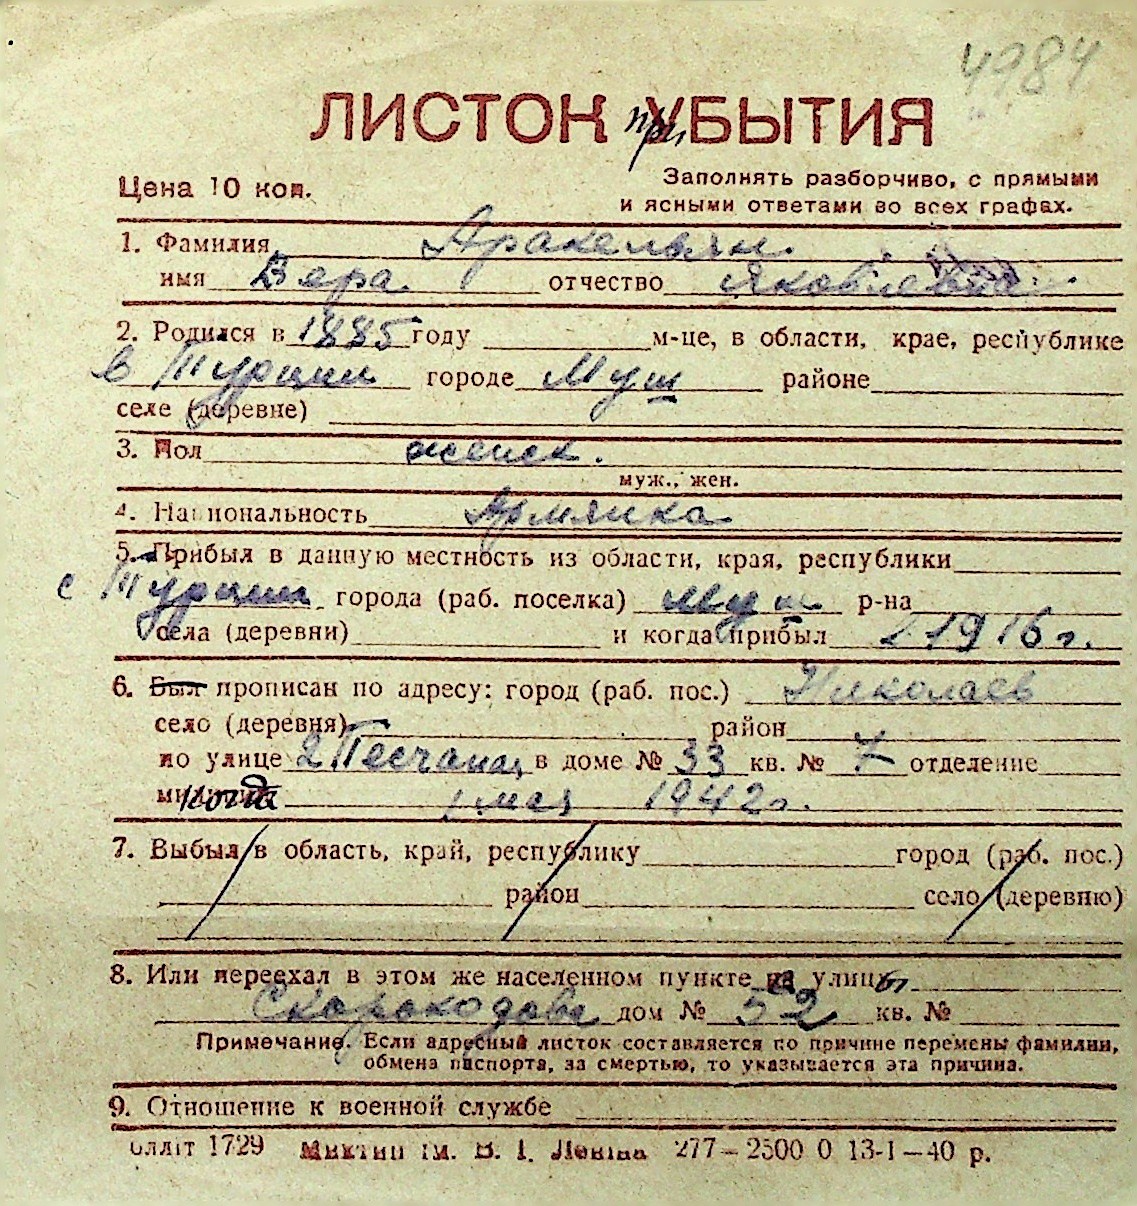 4984
ЛИСТОК при УБЫТИЯ
Цена 10 коп.
Заполнять разборчиво, с прямыми
и ясными ответами во всех графах.
1. Фамилия Аракельян.
имя Вера отчество Яковлевна
2. Родился в 1885 году м-це, в области, крае, республике
в Турции городе Муш районе
селе (деревне)
3. Пол женск.
муж., жен.
4. Национальность Армянка
5. Прибыл в данную местность из области, края, республики
с Турции города (раб. поселка) Муш р-на
села (деревни) и когда прибыл 1916 г.
6. Был прописан по адресу: город (раб. пос.) Николаев
село (деревня) район
по улице 2 Песчаная в доме № 33 кв. № 7 отделение
милиции когда 1 мая 1942 г.
7. Выбыл в область, край, республику город (раб. пос.)
район село (деревню)
8. Или переехал в этом же населенном пункте на улицы
Скороходова дом № 52 кв. №
Примечание. Если адресный листок составляется по причине перемены фамилии,
обмена паспорта, за смертью, то указывается эта причина.
9. Отношение к военной службе
Облліт 1729 ім. В. І. Леніна 277–2500 0 13-I–40 р.